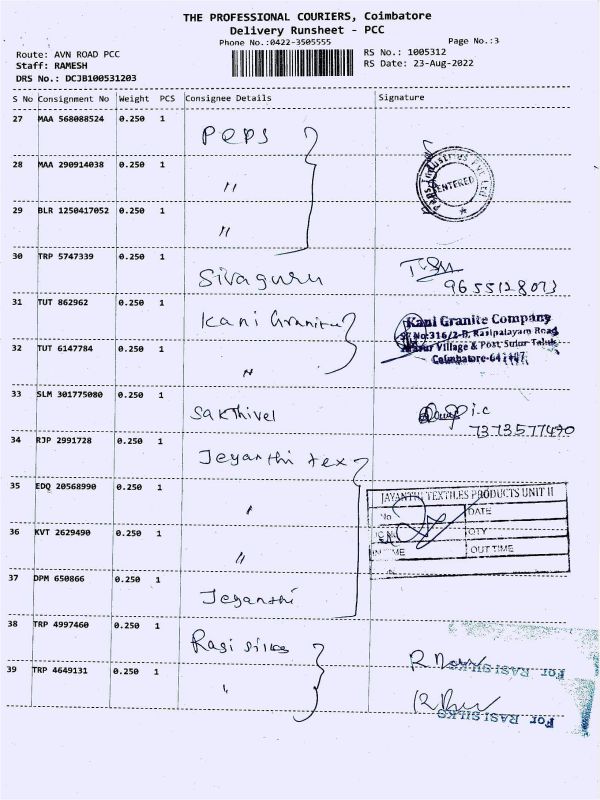 THE PROFESSIONAL COURIERS, Coimbatore
Delivery Runsheet - PCC
Phone No.:0422-3505555 Page No.:3
Route: AVN ROAD PCC RS No.: 1005312
Staff: RAMESH RS Date: 23-Aug-2022
DRS No.: DCJB100531203
S No Consignment No Weight PCS Consignee Details Signature
27 MAA 568088524 0.250 1 PePS
Peps Industries Pvt Ltd
ENTERED
28 MAA 290914038 0.250 1 "
29 BLR 1250417052 0.250 1 "
30 TRP 5747339 0.250 1 Sivaguru
9655128073
31 TUT 862962 0.250 1 Kani Granite
Kani Granite Company
SF No:316/2-B, Rasipalayam Road,
Village & Post, Sulur Taluk,
Coimbatore-641407
32 TUT 6147784 0.250 1 "
33 SLM 301775080 0.250 1 Sakthivel
i.c
7373577490
34 RJP 2991728 0.250 1 Jeyanthi tex
35 EDQ 20568990 0.250 1 "
JAYANTHI TEXTILES PRODUCTS UNIT II
No DATE
QTY
OUT TIME
36 KVT 2629490 0.250 1 "
37 DPM 650866 0.250 1 Jeyanthi
38 TRP 4997460 0.250 1 Rasi silks
For RASI SILKS
39 TRP 4649131 0.250 1 "
For RASI SILKS